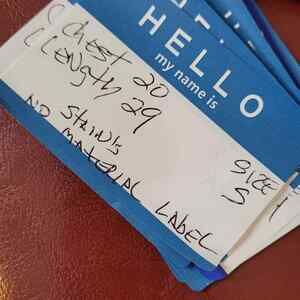 HELLO
my name is
Chest 20
Length 29
NO Stains
NO MATERIAL LABEL
SIZE
S